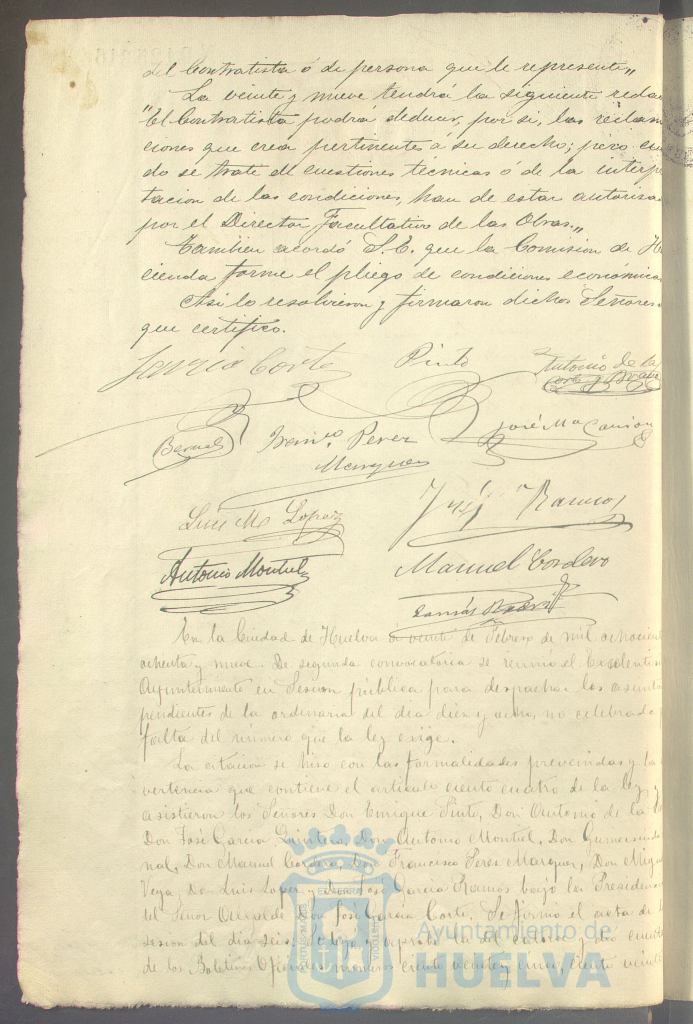 del Contratista ó de persona que le represente„
La veinte y nueve tendrá la siguiente redac
"El Contratista podrá deducir, por si, las reclam
ciones que crea pertinentes á su derecho; pero cu
do se trate de cuestiones técnicas ó de la interp
tacion de las condiciones, han de estar autoriza
por el Director Facultativo de las Obras.„
Tambien acordó S.E. que la Comision de H
cienda forme el pliego de condiciones económicas
Asi lo resolvieron y firmaron dichos Señores
que certifico.
Garcia Corte Pinto Antonio de la
Corte y Bravo
Bernal Franco. Perez José Ma
Marquez
Luis M. Lopez José G. Ramos
Antonio Montiel Manuel Cordero
Tomás
En la Ciudad de Huelva á veinte de Febrero de mil ochocien
ochenta y nueve. De segunda convocatoria se reunió el Excelentis
Ayuntamiento en Sesion pública para despachar los asunt
pendientes de la ordinaria del dia diez y ocho, no celebrada
falta del número que la ley exige.
La citacion se hizo con las formalidades prevenidas y la
vertencia que contiene el articulo ciento cuatro de la ley y
asistieron los Señores Don Enrique Pinto, Don Antonio de la
Don José Garcia Quintero, Don Antonio Montiel, Don Gumersindo
nal, Don Manuel Cordero, Don Francisco Perez Marquez, Don Migu
Vega, Don Luis Lopez y Don José Garcia Ramos bajo la Presidenc
del Señor Alcalde Don José Garcia Corte. Se firmó el acta de
sesion del dia seis. Se leyó y aprobó la del catorce y dió cuenta
de los Boletines Oficiales números ciento veinte y cinco, ciento veinte
Ayuntamiento de
HUELVA